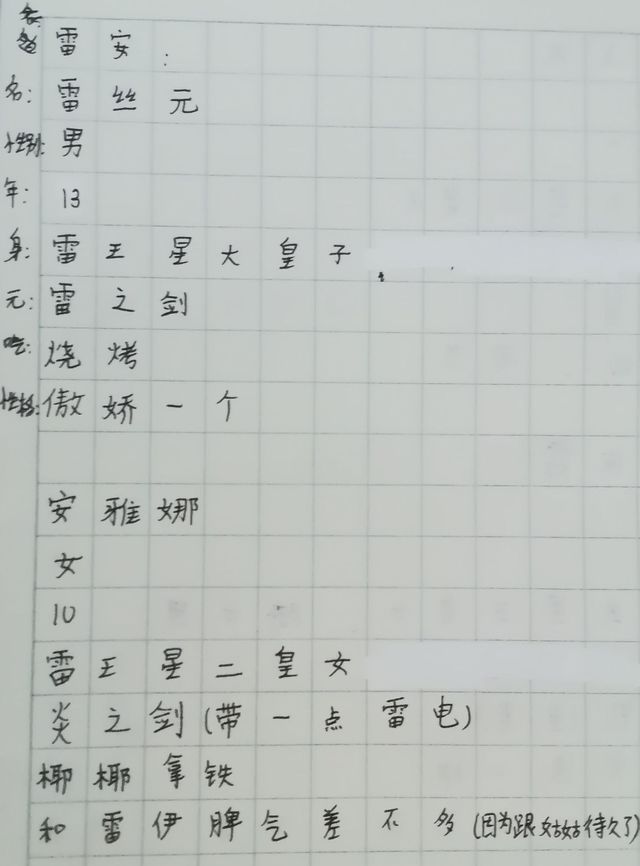 雷安:
名:雷丝元
性别:男
年:13
身:雷王星大皇子
元:雷之剑
吃:烧烤
性格:傲娇一个
安雅娜
女
10
雷王星二皇女
炎之剑(带一点雷电)
椰椰拿铁
和雷伊脾气差不多(因为跟姑姑待久了)